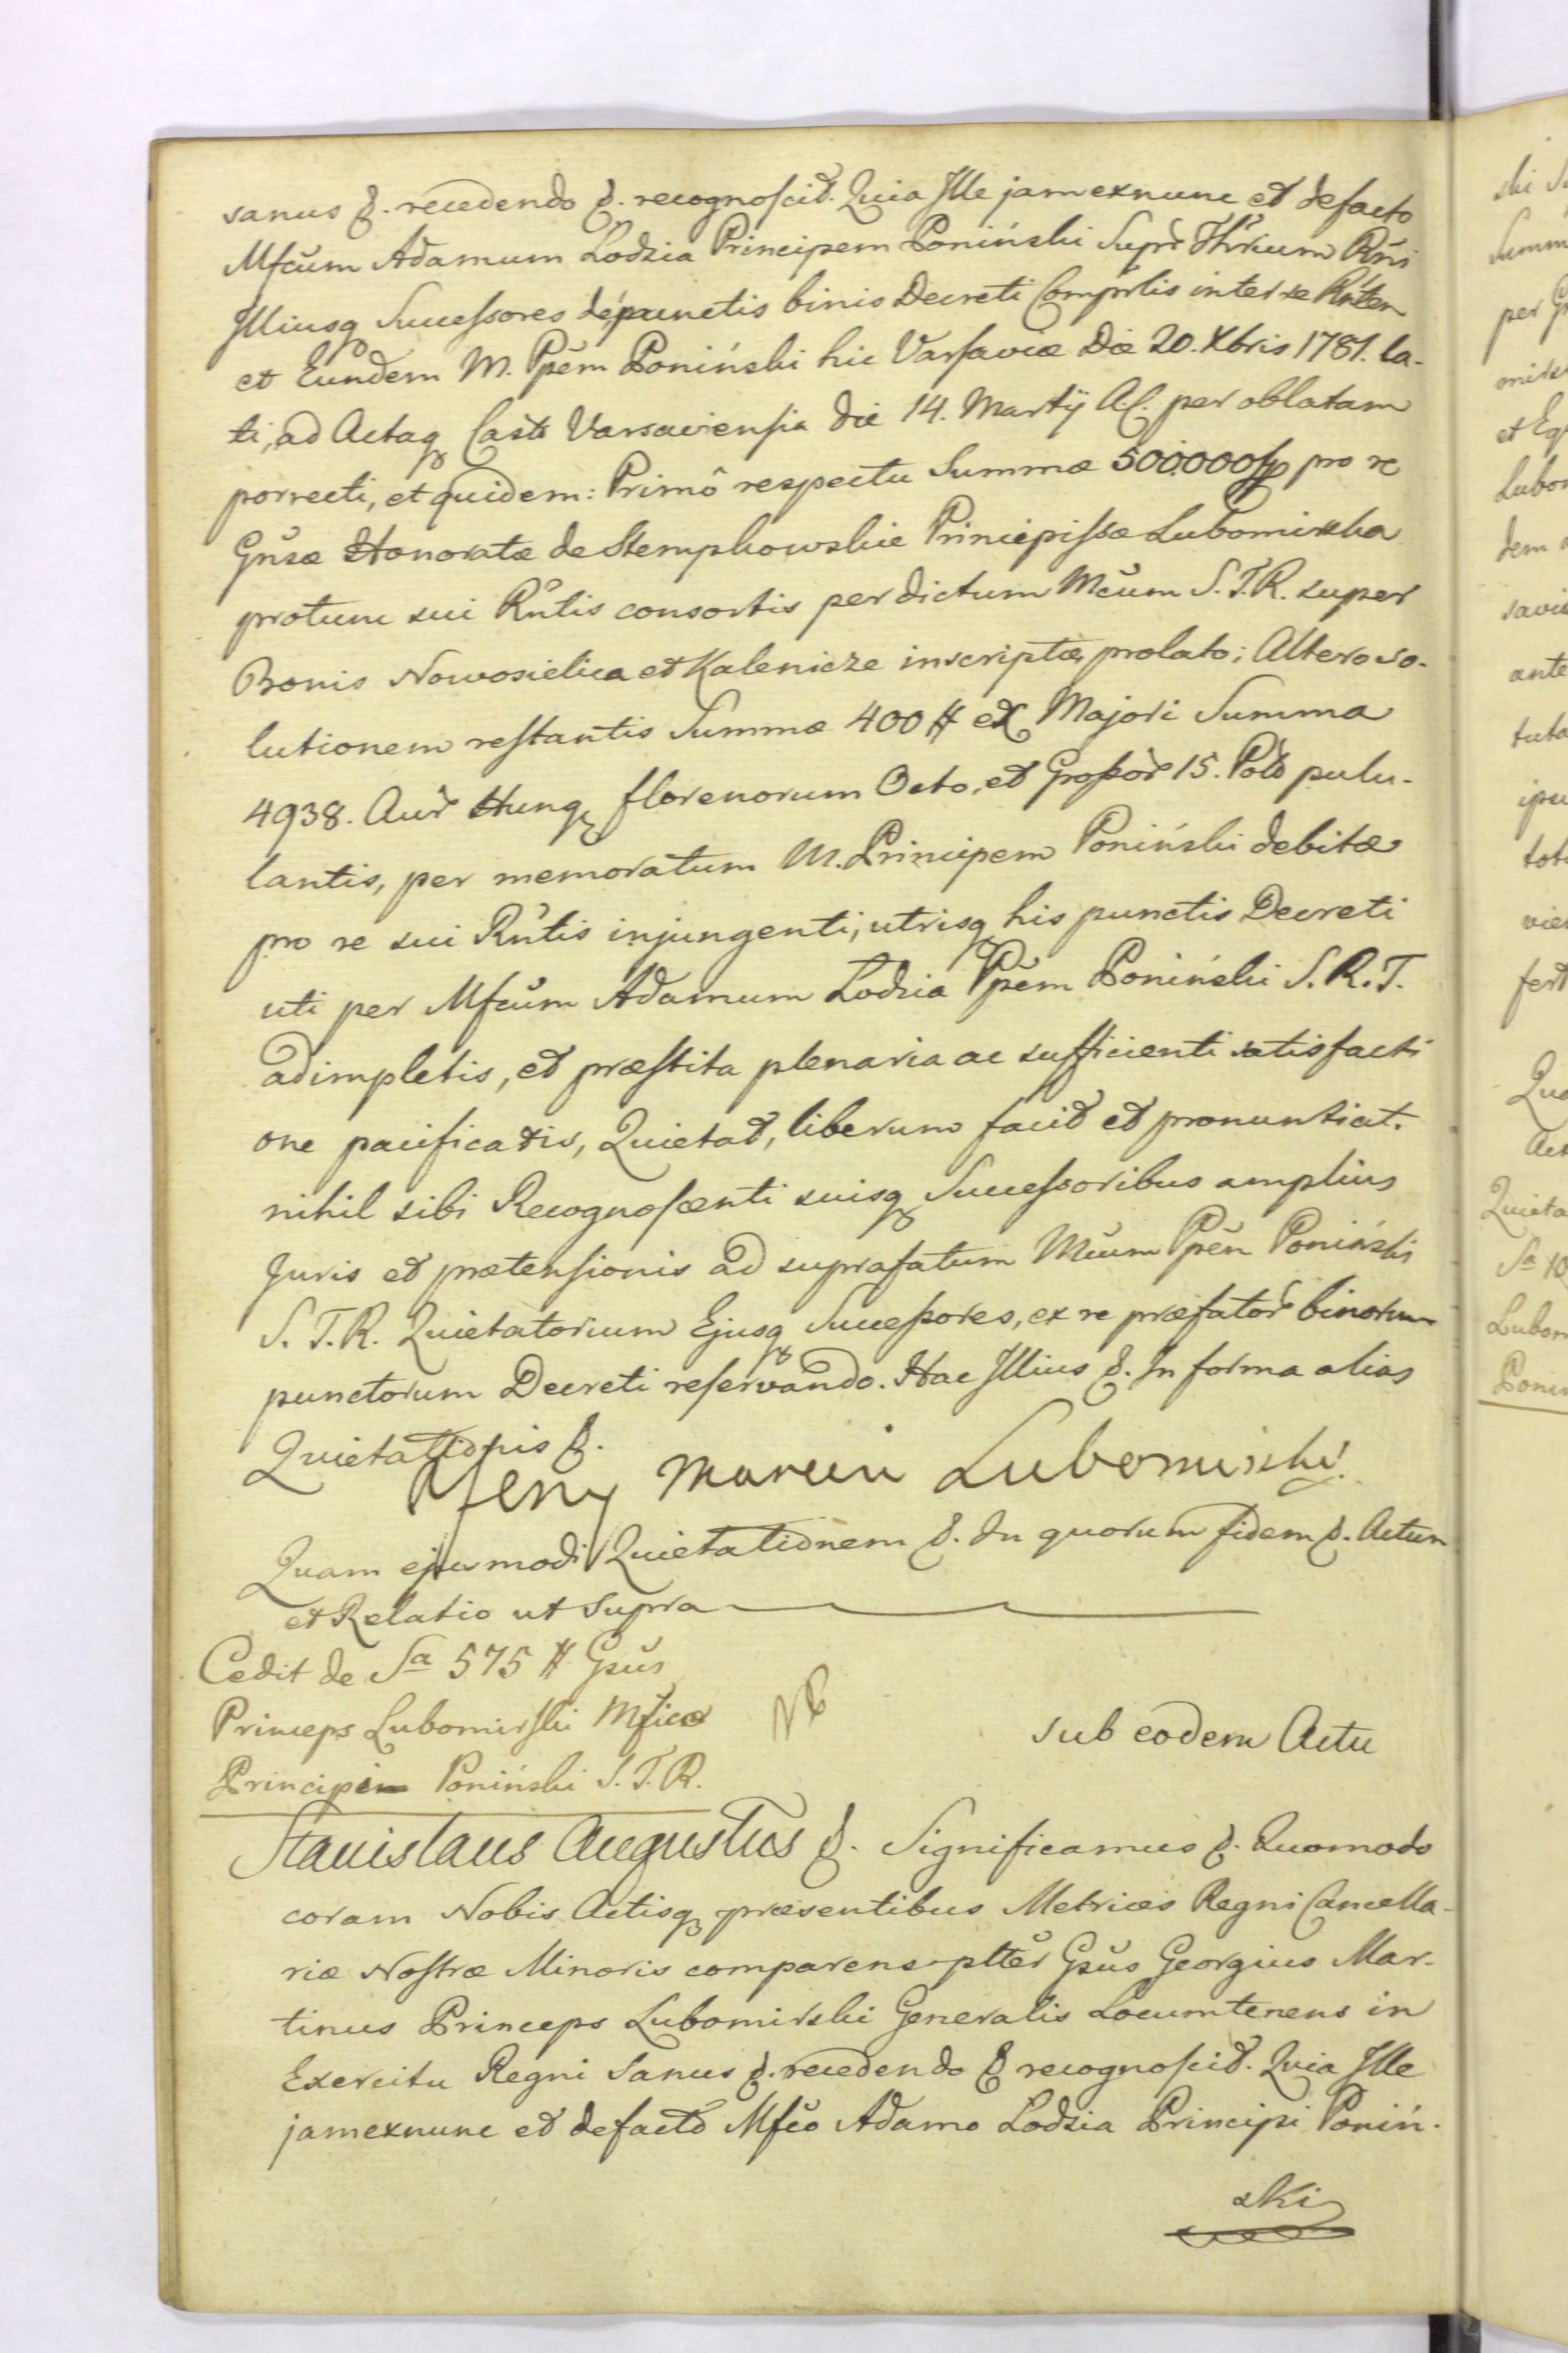 sanus &. recedendo &. recognoscit. Quia Ille jam exnunc et defacto
Mfcum Adamum Lodzia Principem Poniński Supr Thrium Rni
Illiusq Successores de punctis binis Decreti Comprlis inter se Rntem
et Eundem M. Ppem Poniński hic Varsaviæ Die 20. Xbris 1781. la-
ti, ad Actaq Casts Varsaviensia die 14. Martij A.C. per oblatam
porrecti, et quidem: Primô respectu Summæ 500000 fp pro re
Gnsæ Honoratæ de Stempkowskie Principissæ Lubomirska
protunc sui Rntis consortis per dictum Mcum S.T.R. super
Bonis Nowosielica et Kalenicze inscriptæ, prolato; Altero so-
lutionem restantis Summæ 400 # ex Majori Summa
4938. Aur Hung florenorum Octo, et Grossor 15. Pold pulu-
lantis, per memoratum M. Principem Poniński debitæ
pro re sui Rntis injungenti, utrisq his punctis Decreti
uti per Mfcum Adamum Lodzia Ppem Poniński S.R.T.
adimpletis, et præstita plenaria ac sufficienti satisfacti
one pacificatis, Quietat, liberum facit et pronuntiat.
nihil sibi Recognoscenti suisq Successoribus amplius
Juris et prætensionis ad suprafatum Mcum Ppen Poniński
S.T.R. Quietatorium Ejusq Successores, ex re præfator binorum
punctorum Decreti reservando. Hac Illius &. In forma alias
Quietationis &.
Marcin Lubomirski
Quam ejusmodi Quietationem &. In quorum fidem &. Actum
et Relatio ut supra
Cedit de Sa 575 # Gsus
Princeps Lubomirski Mfico
Principi Poniński S.T.R.
NB
sub eodem Actu
Stanislaus Augustus &. Significamus &. Quomodo
coram Nobis Actisq præsentibus Metrices Regni Cancella-
riæ Nostræ Minoris comparens plter Gsus Georgius Mar-
tinus Princeps Lubomirski Generalis Locumtenens in
Exercitu Regni Sanus &. recedendo & recognoscit. Quia Ille
jam exnunc et defacto Mfco Adamo Lodzia Principi Poniń-
ski